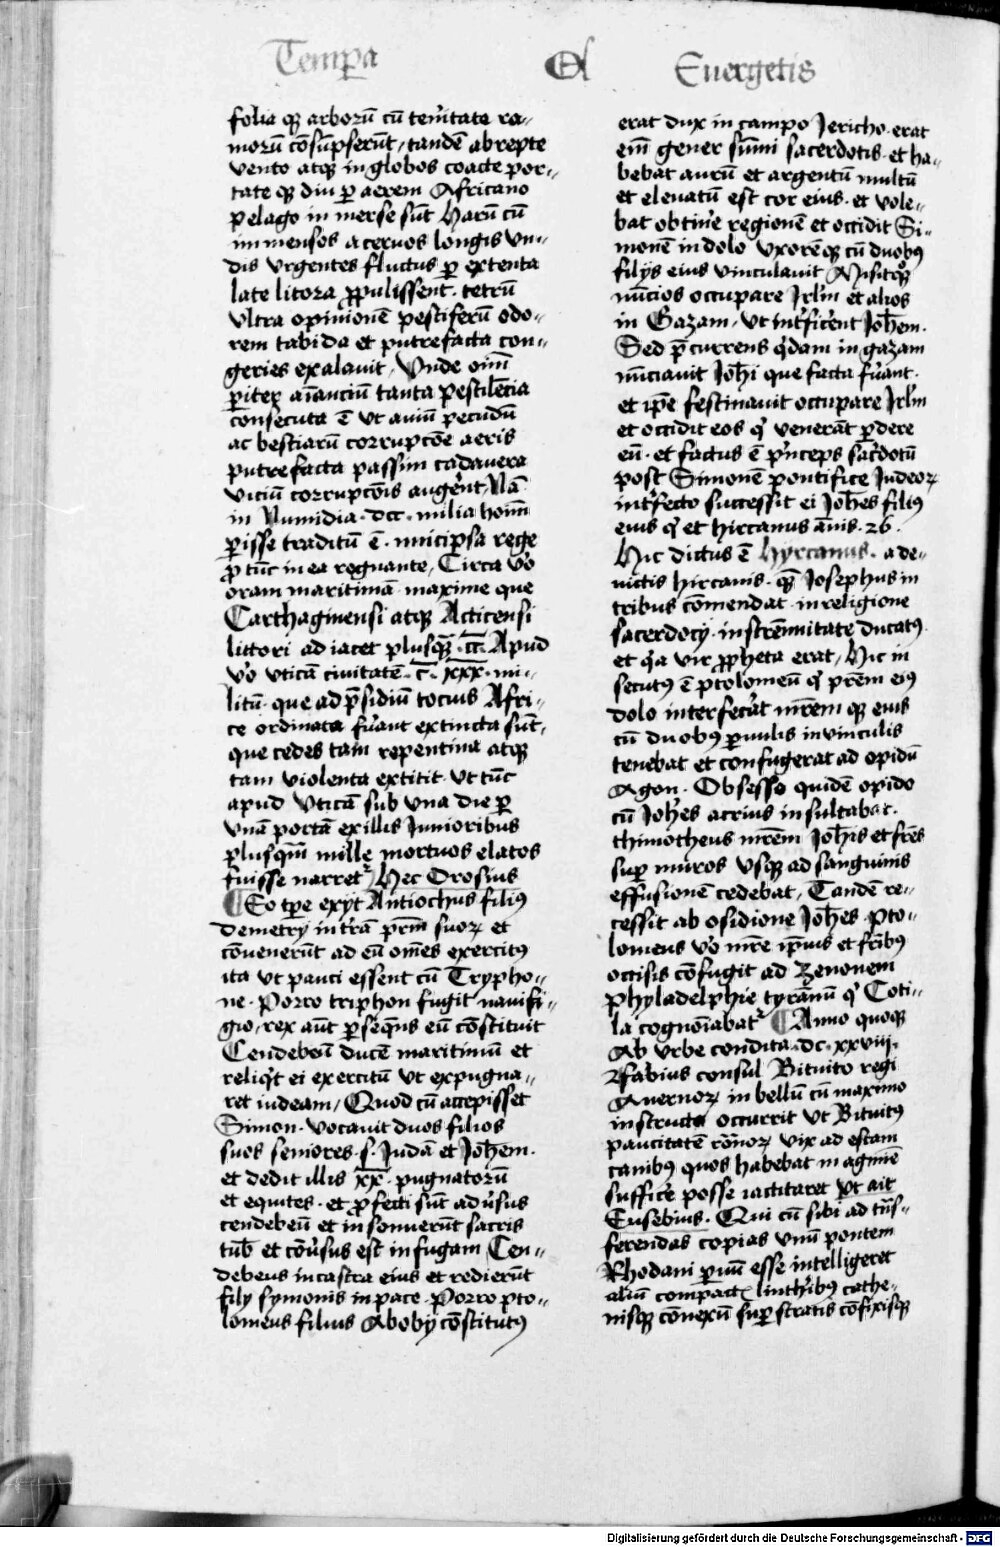 Temp̄a Ol Euergetis
folia qꝫ arborū cū tenͥtate ra-
morū cōsūpserūt, tandē abrepte
vento atqꝫ in globos coacte por-
tate qꝫ diu ꝑ aerem Africano
pelago in merse sūt Harū cū
immensos aceruos longis vn-
dis vrgentes fluctus ꝑ extenta
late litora ꝓpulissent. tetrū
vltra opinionē pestiferū odo-
rem tabida et putrefacta con-
geries exalauit, Vnde oīm
ꝑiter aīanciū tanta pestilēcia
consecuta ē vt auiū pecudū
ac bestiarū corrupcōe aeris
putrefacta passim cadauera
viciū corrupcōis augerͤnt, Nā
in Numidia .dcc. milia hoīm
ꝑisse traditū ē. micipsa rege
ꝓ tūc in ea regnante, Circa vͦo
oram maritimā maxime que
Carthaginensi atqꝫ Acticensi
littori ad iacet plusqꝫ .cc. Apud
vͦo vticā ciuitatē. c̄. xxx. mi-
litū. que ad p̄sidiū tocius Afri-
ce ordinata fuͤant extincta sūt,
que cedes tam repentina atqꝫ
tam violenta extitit. vt tūc
apud vticā sub vna die ꝑ
vnā portā ex illis Iunioribus
plusqm̄ mille mortuos elatos
fuisse narretͬ, Hec Orosius
¶ Eo tꝑe exijt Antiochus filiꝰ
demetrij in trā prm̄ suoꝝ et
cōuenerūt ad eū om̄es exercitꝰ
ita vt pauci essent cū Trypho-
ne. Porro triphon fugit nauifi-
gio, rex aūt ꝑseqn̄s eū cōstituit
Cendebeū ducē maritimū et
reliqͥt ei exercitū vt expugna-
ret iudeam, Quod cū accepisset
Simon. vocauit duos filios
suos seniores .s. Judā et Joh̄em.
et dedit illis x̄x̄. pugnatorū
et equites. et ꝓfecti sūt adūsus
cendebeū et insonuerūt sacris
tūb et cōuͥsus est in fugam Cen-
debeus in castra eius et redierūt
filij symonis in pace. Porro pto-
lomeus filius Abobij cōstitutꝰ
erat dux in campo Jericho. erat
eīm gener sūmi sacerdotis. et ha-
bebat aurū et argentū multū
et eleuatū est cor eius. et vole-
bat obtinͤe regionē et occidit Si-
monē in dolo vxorēqꝫ cū duobꝰ
filijs eius vinculauit Misitqꝫ
nūcios occupare Jrl̄m et alios
in Gazam, vt intͤficͤent Joh̄em.
Sed p̄currens qͥdam in gazam
nūciauit Joh̄i que facta fuͤant.
et ip̄e festinauit occupare Jrl̄m
et occidit eos qͥ venerāt ꝑdere
eū. et factus ē pͥnceps sacͤdotū
post Simonē pontifice Judeoꝝ
intͤfecto successit ei Joh̄es filiꝰ
eius qͥ et hircanus ānis. 26.
Hic dictus ē hyrcanus. a de-
uictis hircanis. qꝫ Josephus in
tribus cōmendat. in religione
sacerdocij. in strēnuitate ducatꝰ
et qͥa vir ꝓpheta erat, Hic in
secutꝰ ē ptolomeū qͥ prēm eiꝰ
dolo interfecͤat mr̄em qꝫ eius
cū duobꝰ ꝑuulis in vinculis
tenebat et confugerat ad opidū
Agon. Obsesso quidē opido
cū Joh̄es acrius insultabat.
thimotheus mr̄em Joh̄is et fr̄es
suꝑ muros vsqꝫ ad sanguinis
effusionē cedebat, Tandē re-
cessit ab osidione Joh̄es. Pto-
lomeus vͦo mr̄e ip̄ius et fr̄ibꝰ
occisis cōfugit ad Zenonem
phyladelphie tyrānū qͥ Coti-
la cognoīabatͬ ¶ Anno quoqꝫ
Ab vrbe condita. dc. xxviij.
Fabius consul Bituito regi
Auernoꝝ in bellū cū maximo
instructu occurrit vt Bituitꝰ
paucitatē rōnoꝝ vix ad escam
canibꝰ quos habebat in agmīe
sufficͤe posse iactitaret vt ait
Eusebius. Qui cū sibi ad tn̄s-
ferendas copias vnū pontem
Rhodani ꝑuū esse intelligeret
aliū compactꝭ linthͥibꝰ cathe-
nisqꝫ cōnexū suꝑ stratis cōfixisqꝫ
Digitalisierung gefördert durch die Deutsche Forschungsgemeinschaft - DFG